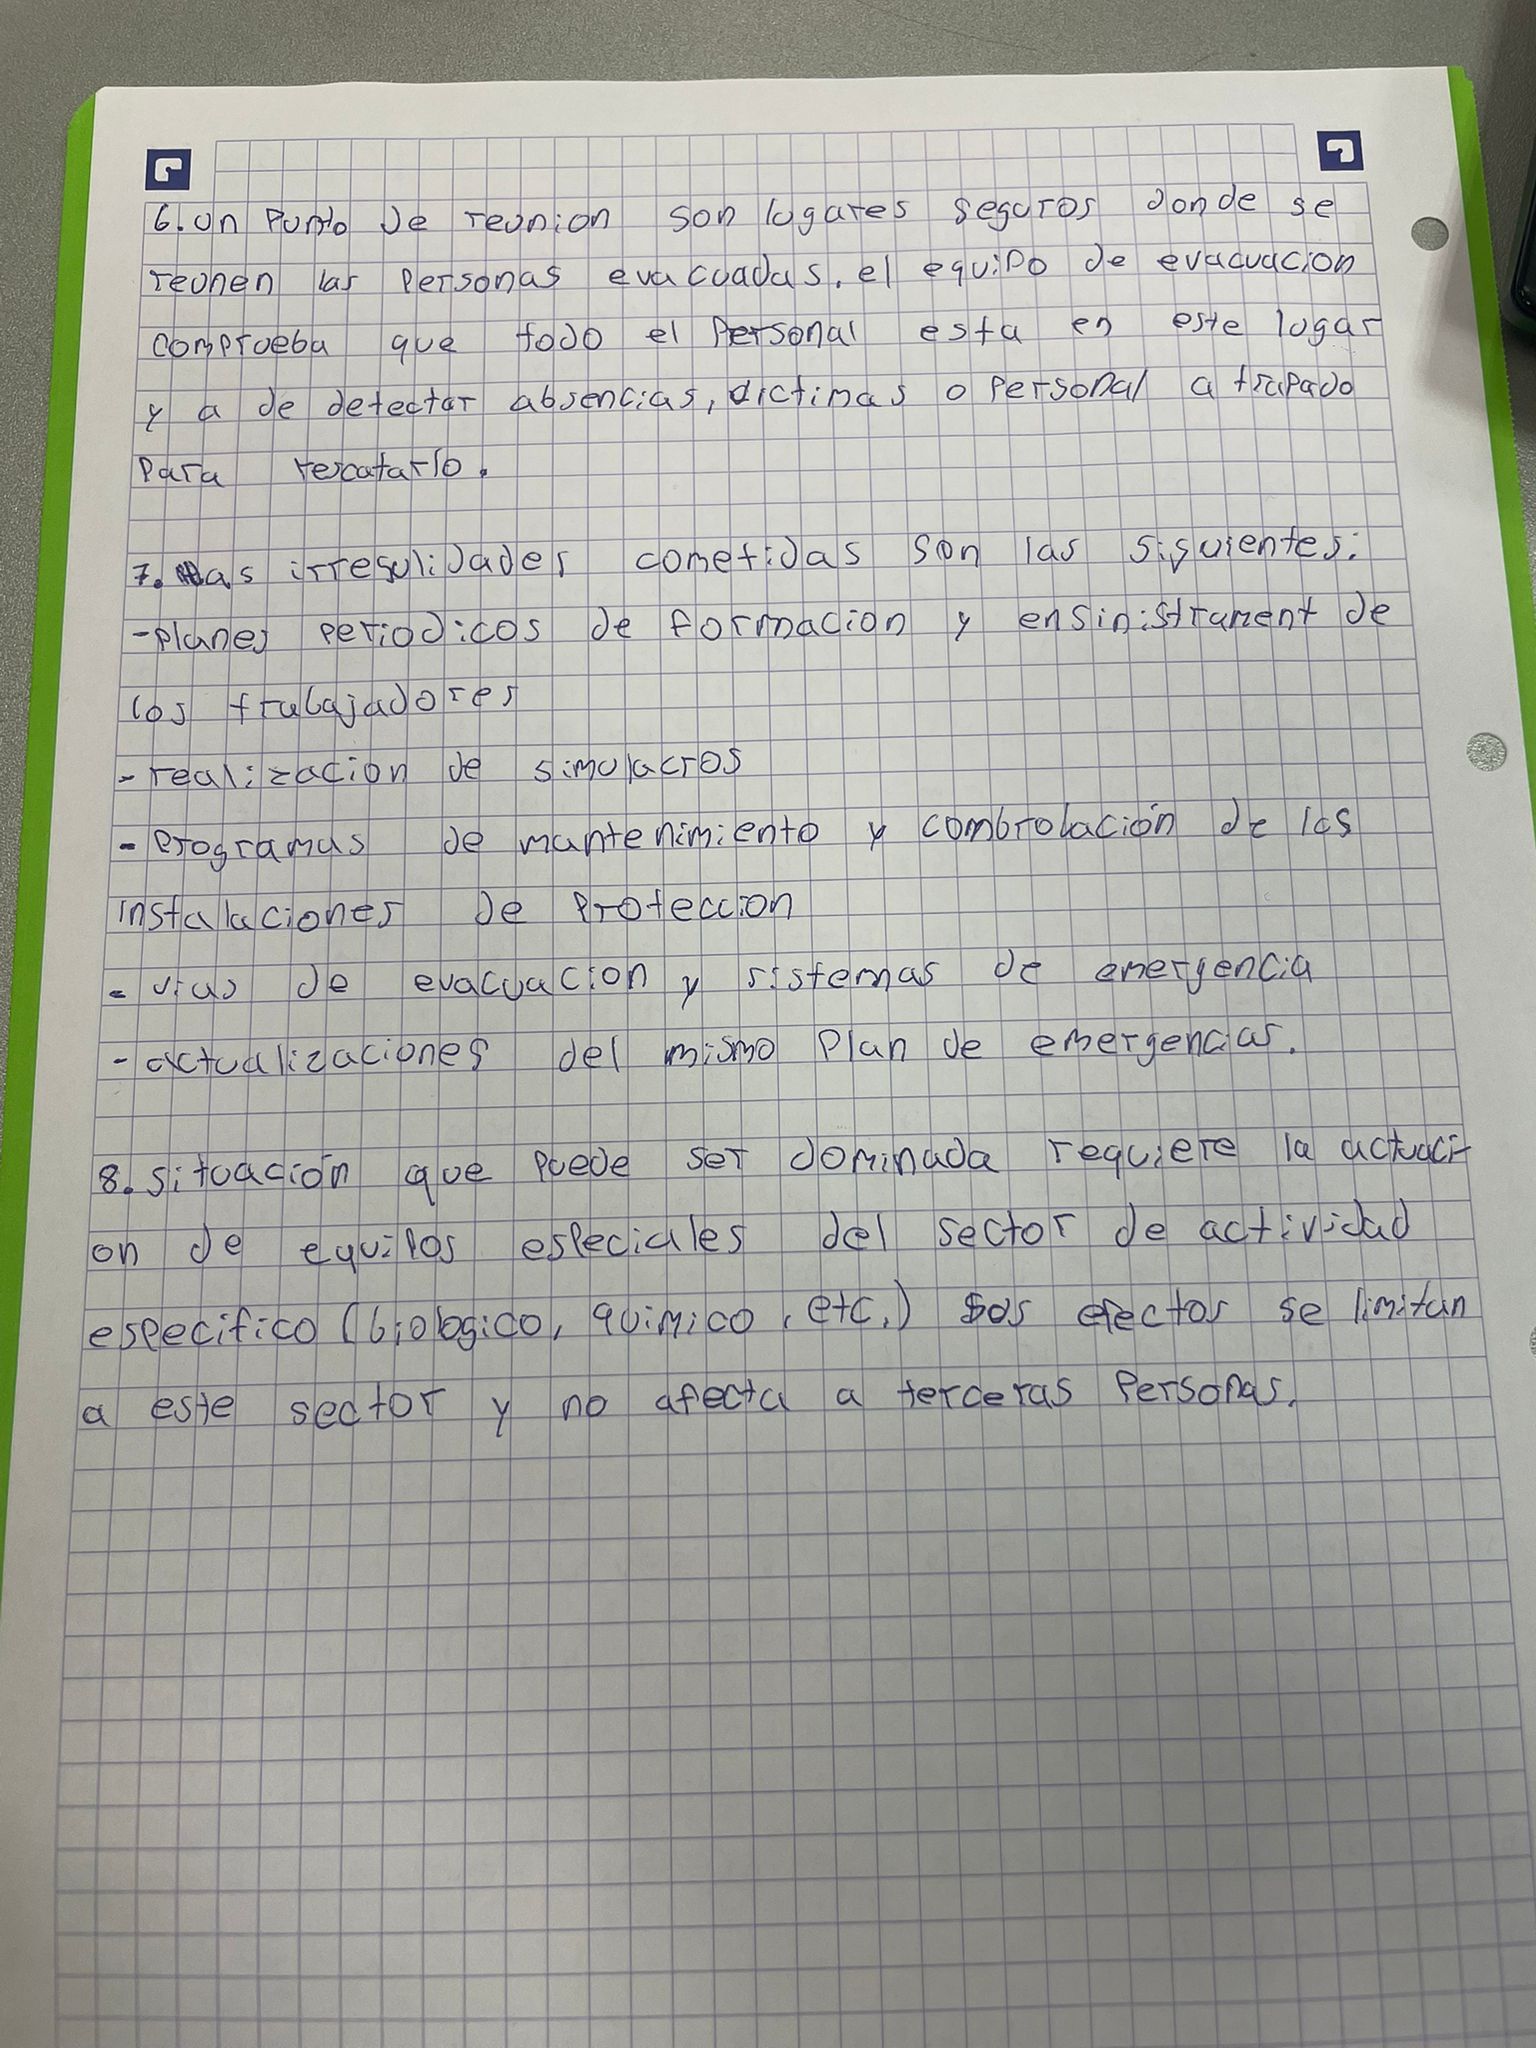 6. un Punto de reunion son lugares seguros donde se
reunen las Personas evacuadas. el equipo de evacuacion
comprueba que todo el Personal esta en este lugar
y a de detectar absencias, victimas o Personal atrapado
Para rescatarlo.
7. las irregulidades cometidas son las siguientes:
- planes periodicos de formacion y ensinistrament de
los trabajadores
- realizacion de simulacros
- Programas de mantenimiento y combrobación de las
instalaciones de Proteccion
- vias de evacuacion y sistemas de emergencia
- actualizaciones del mismo Plan de emergencias.
8. situación que puede ser dominada requiere la actuaci-
on de equipos especiales del sector de actividad
especifico (biologico, quimico, etc.) sos efectos se limitan
a este sector y no afecta a terceras Personas.